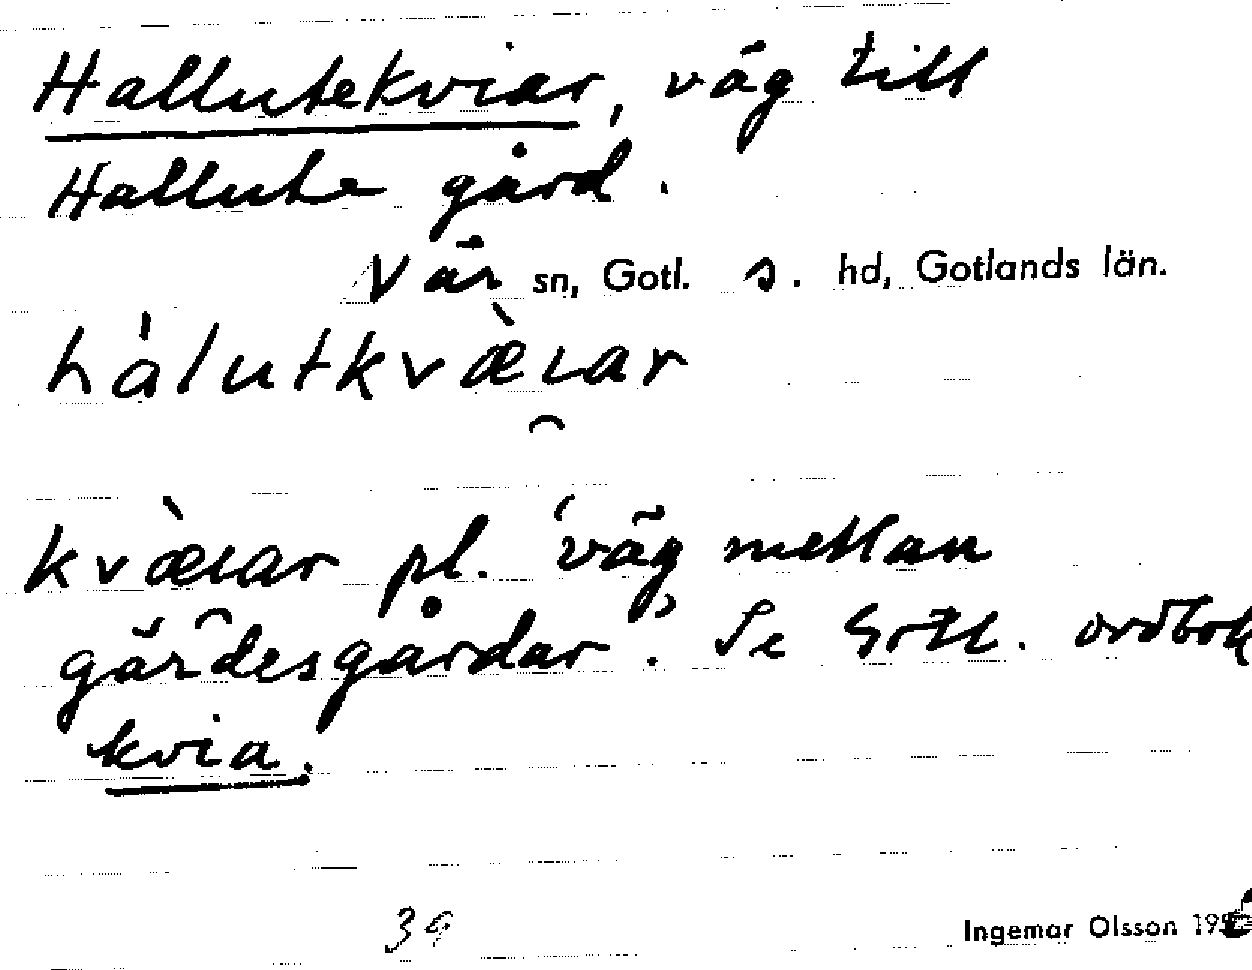 Hallutekviar, väg till
Hallute gård.
Vär sn, Gotl. s. hd, Gotlands län.
hàlutkvæ̀ɩar
kvæ̀ɩar pl. 'väg mellan
gärdesgårdar'. Se Gotl. ordbok
kvia.
39
Ingemar Olsson